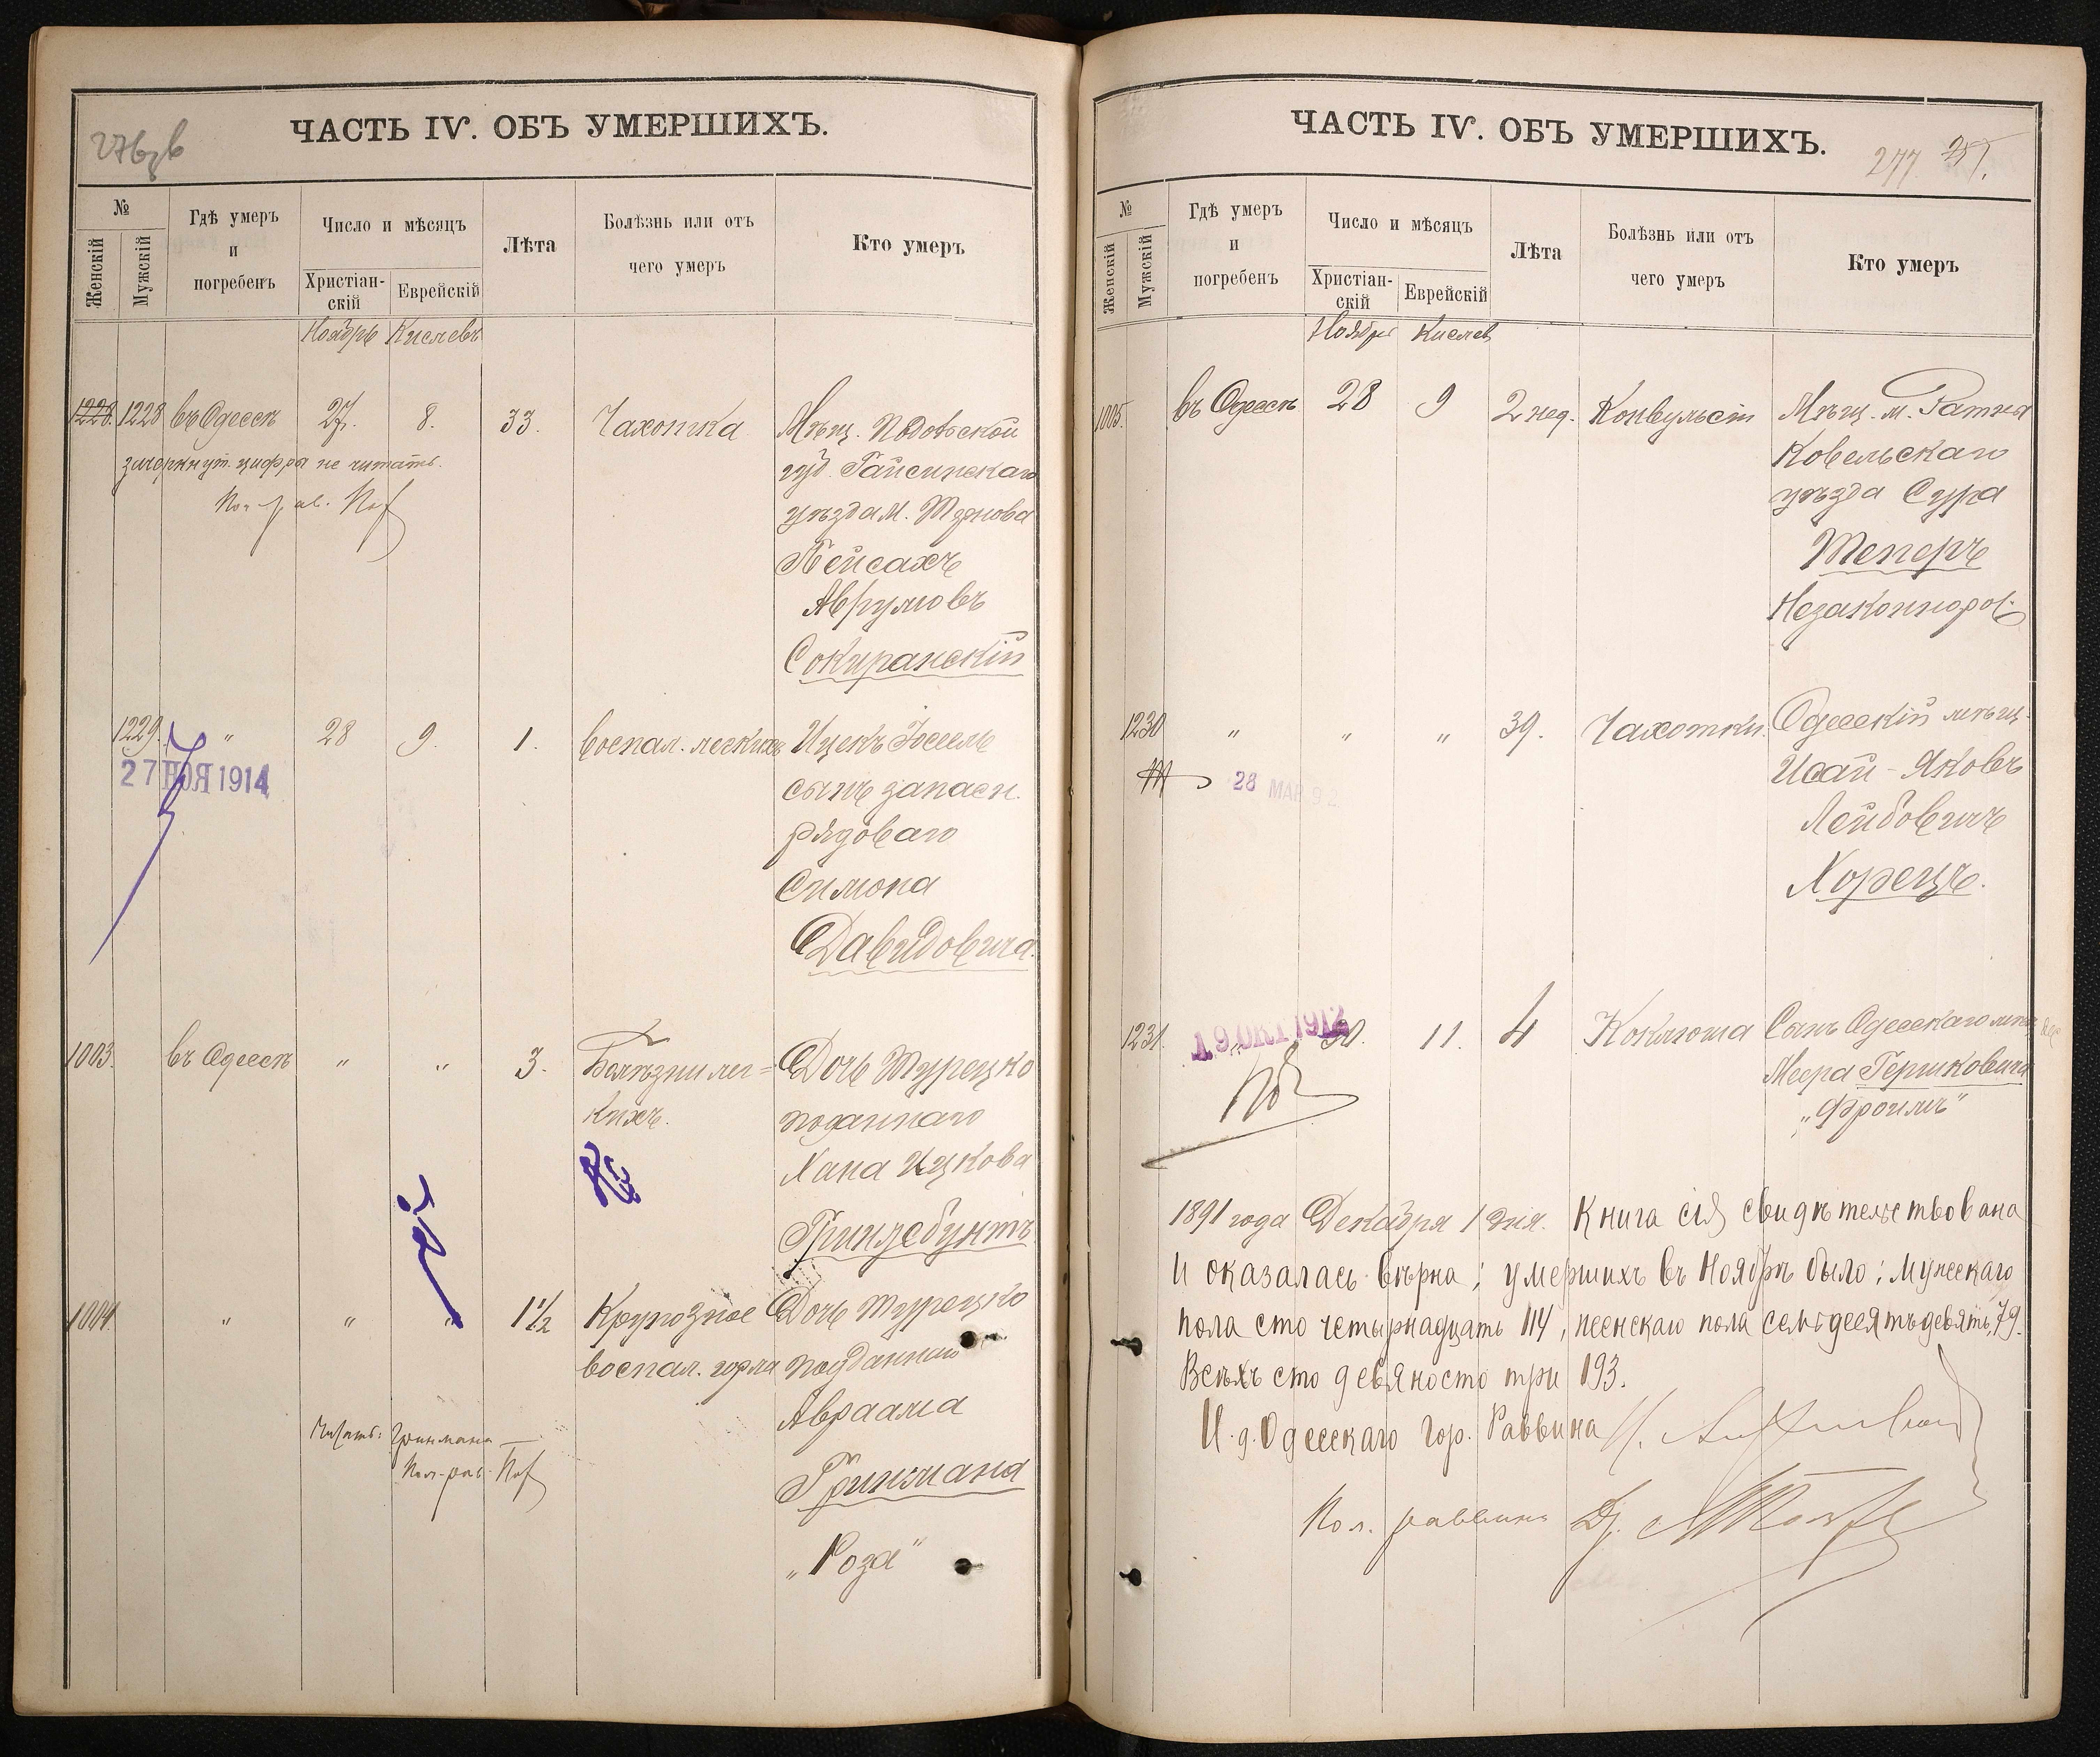 ЧАСТЬ IV. ОБЪ УМЕРШИХЪ.
№
Женскій
Мужскій
Гдѣ умеръ
и
погребенъ
Число и мѣсяцъ
Христіан-
скій
Еврейскій
Лѣта
Болѣзнь или отъ
чего умеръ
Кто умеръ
Ноябрь Кислевъ
1228. 1228 въ Одессѣ 27. 8. 33. Чахотка Мѣщ. Подольской
зачеркнут. цифры не читать.
губ. Гайсинскаго
уѣзда м.
Пейсахъ
Аврумовъ
Сокиранскій
1229. " 28 9. 1. Воспал. легкихъ Ицекъ Іосель
27 НОЯ 1914
сынъ запасн.
рядоваго
Симона
Давидовича.
1003. въ Одессѣ " " 3. Болѣзни лег=
кихъ.
Дочь Турецко
поданнаго
Хана Ицкова
1004. " " " 1 1/2 Крупозное
воспал. горла
Дочь турецко
подданнаго
Авраама
Гринмана
"Роза"
Читать: Гринмана —
ЧАСТЬ IV. ОБЪ УМЕРШИХЪ.
277
№
Женскій
Мужскій
Гдѣ умеръ
и
погребенъ
Число и мѣсяцъ
Христіан-
скій
Еврейскій
Лѣта
Болѣзнь или отъ
чего умеръ
Кто умеръ
Ноябрь Кислев
1005. въ Одессѣ 28 9 2 нед. Конвульсіи Мѣщ. м. Ратна
Ковельскаго
уѣзда Сура
Теперъ
Незаконнорож.
1230 " " " 39. Чахотки. Одесскій мѣщ.
28 МАР 92
Исай-Яковъ
Лейбовичъ
Хорецъ.
1231. " 30. 11. 4 Коклюша Сынъ Одесскаго мѣщ.
19 ОКТ 1912
Меера Гершковича
"Фроимъ"
1891 года Декабря 1 дня. Книга сія свидѣтельствована
и оказалась вѣрна; умершихъ въ Ноябрѣ было: мужескаго
пола сто четырнадцать 114, женскаго пола семьдесятъ девять 79.
Всѣхъ сто девяносто три 193.
И. д. Одесскаго Гор. Раввина
Пом. раввина Др.